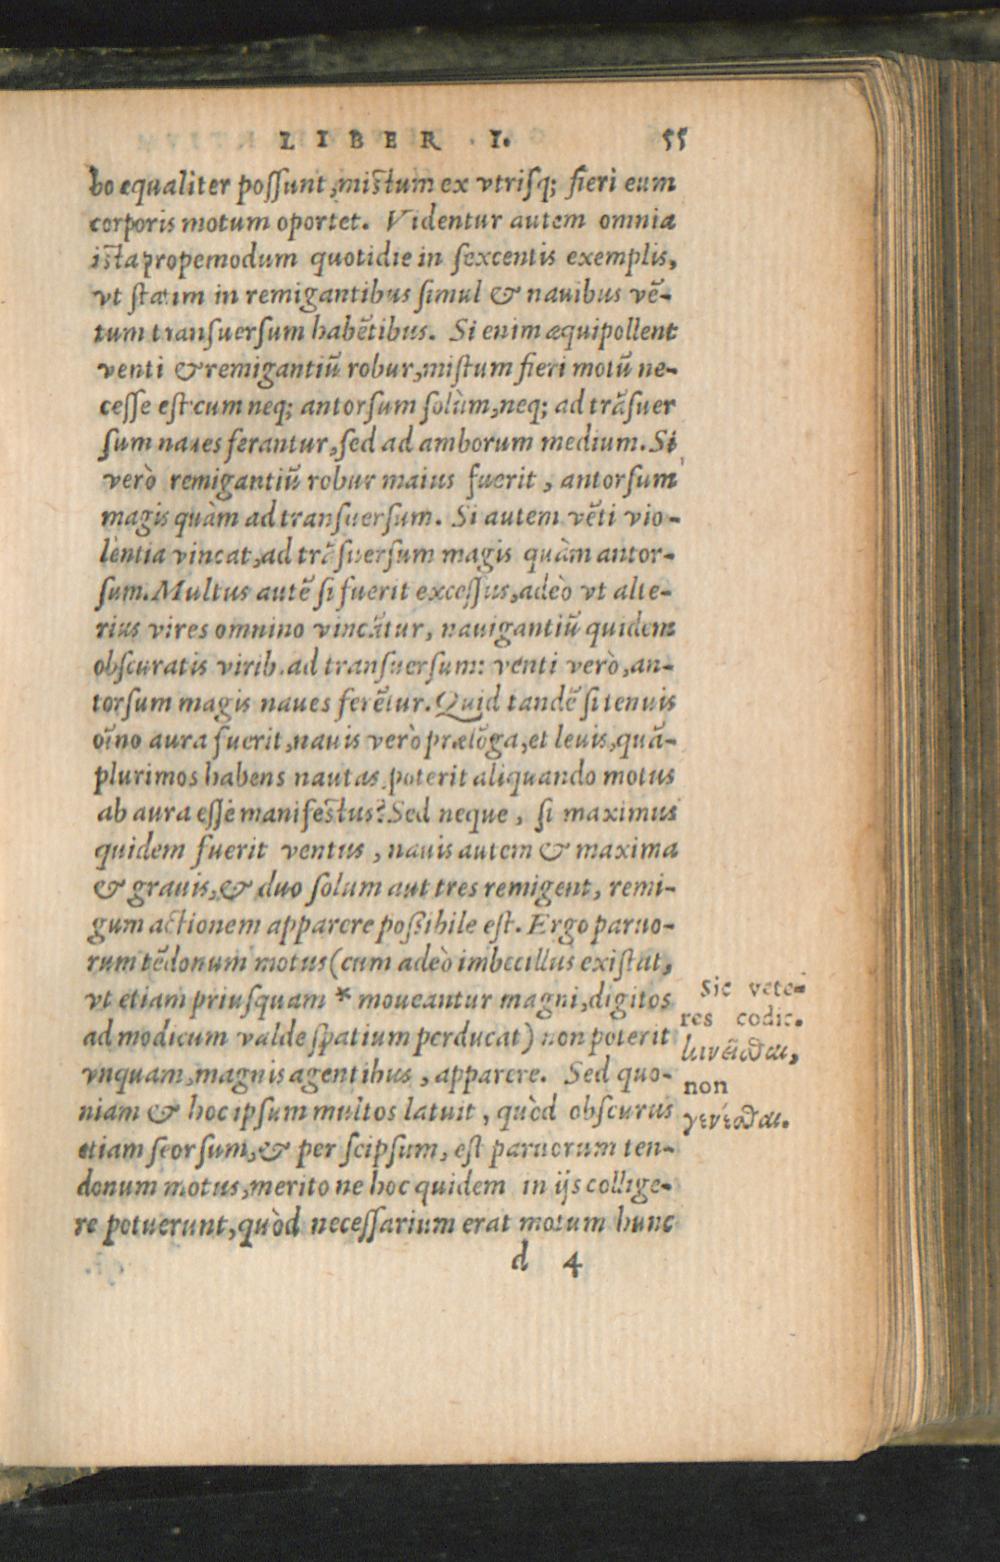 LIBER I. 55
bo equaliter possunt, mistum ex vtrisq; fieri eum
corporis motum oportet. Videntur autem omnia
ista propemodum quotidie in sexcentis exemplis,
vt statim in remigantibus simul & nauibus vẽ-
tum transuersum habẽtibus. Si enim æquipollent
venti & remigantiũ robur, mistum fieri motũ ne-
cesse est cum neq; antorsum solùm, neq; ad trãsuer
sum naues ferantur, sed ad amborum medium. Si
verò remigantiũ robur maius fuerit, antorsum
magis quàm ad transuersum. Si autem vẽti vio-
lentia vincat, ad trãsuersum magis quàm antor-
sum. Multus autẽ si fuerit excessus, adeò vt alte-
rius vires omnino vincãtur, nauigantiũ quidem
obscuratis virib. ad transuersum: venti verò, an-
torsum magis naues ferẽtur. Quid tandẽ si tenuis
oĩno aura fuerit, nauis verò prælõga, et leuis, quã-
plurimos habens nautas, poterit aliquando motus
ab aura esse manifestus? Sed neque, si maximus
quidem fuerit ventus, nauis autem & maxima
& grauis, & duo solum aut tres remigent, remi-
gum actionem apparere possibile est. Ergo paruo-
rum tẽdonum motus (cum adeò imbecillus existat,
vt etiam priusquam * moueantur magni, digitos
ad modicum valde spatium perducat) non poterit
vnquam, magnis agentibus, apparere. Sed quo-
niam & hoc ipsum multos latuit, quòd obscurus
etiam seorsum, & per seipsum, est paruorum ten-
donum motus, merito ne hoc quidem in ijs collige-
re potuerunt, quòd necessarium erat motum hunc
d 4
Sic vete-
res codic.
κινεῖσθαι,
non
γενέσθαι.